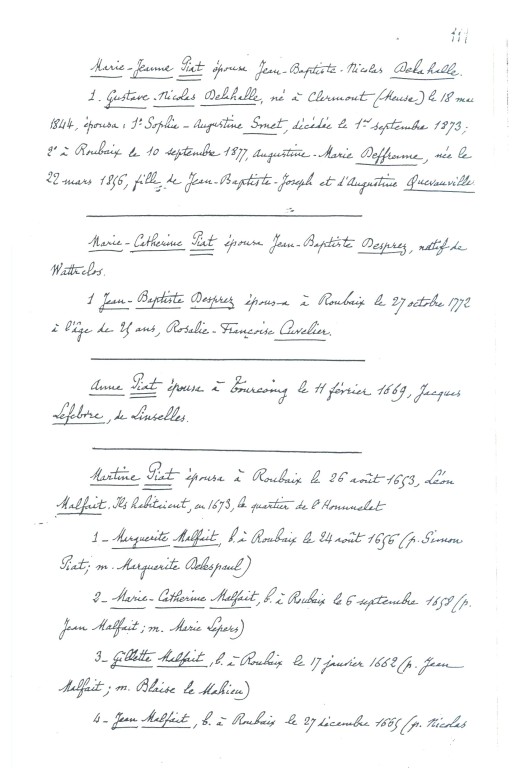 111
Marie-Jeanne Piat épousa Jean-Baptiste-Nicolas Delahalle.
1. Gustave-Nicolas Delahalle, né à Clermont (Meuse) le 18 mai
1844, épousa : 1° Sophie-Augustine Smet, décédée le 1er septembre 1873;
2° à Roubaix le 10 septembre 1877, Augustine-Marie Deffrenne, née le
22 mars 1856, fille de Jean-Baptiste-Joseph et d'Augustine Quevauville
Marie-Catherine Piat épousa Jean-Baptiste Desprez, natif de
Wattrelos.
1 Jean-Baptiste Desprez épousa à Roubaix le 27 octobre 1772
à l'âge de 25 ans, Rosalie-Françoise Cuvelier.
Anne Piat épousa à Tourcoing le 11 février 1669, Jacques
Lefebvre, de Linselles.
Martine Piat épousa à Roubaix le 26 août 1653, Léon
Malfait. Ils habitaient, en 1673, le quartier de l'Hommelet
1 - Marguerite Malfait, b. à Roubaix le 24 août 1656 (p. Simon
Piat; m. Marguerite Delespaul)
2 - Marie-Catherine Malfait, b. à Roubaix le 6 septembre 1658 (p.
Jean Malfait; m. Marie Lepers)
3 - Gillette Malfait, b. à Roubaix le 17 janvier 1662 (p. Jean
Malfait; m. Blaise le Mahieu)
4 - Jean Malfait, b. à Roubaix le 27 décembre 1665 (p. Nicolas